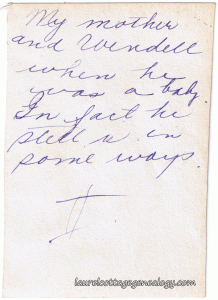 My mother
and Wendell
when he
was a baby.
In fact he
still is in
some ways.
laurelcottagegenealogy.com